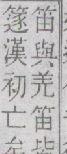 笛與羌笛皆
篴漢初亡